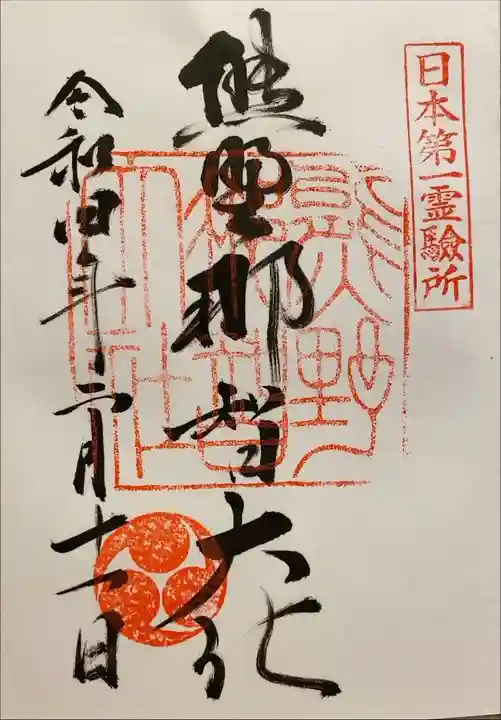 日本第一霊驗所
熊野那智大社
熊野
那智
大社
令和四年二月十一日